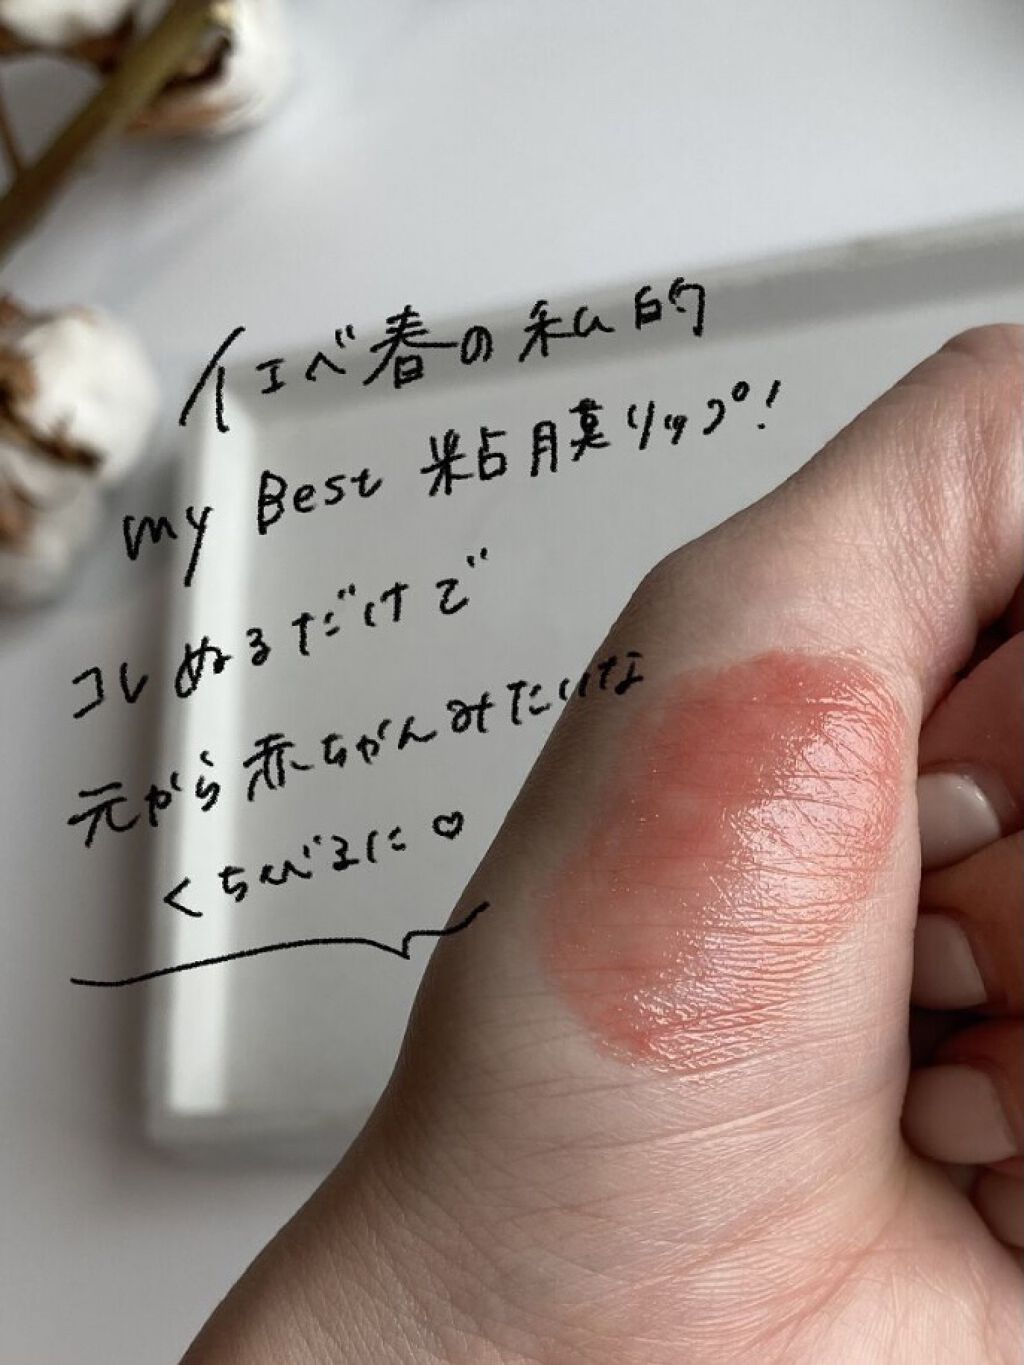 イエベ春の私的
my Best 粘膜リップ!
コレぬるだけで
元から赤ちゃんみたいな
くちびるに♡